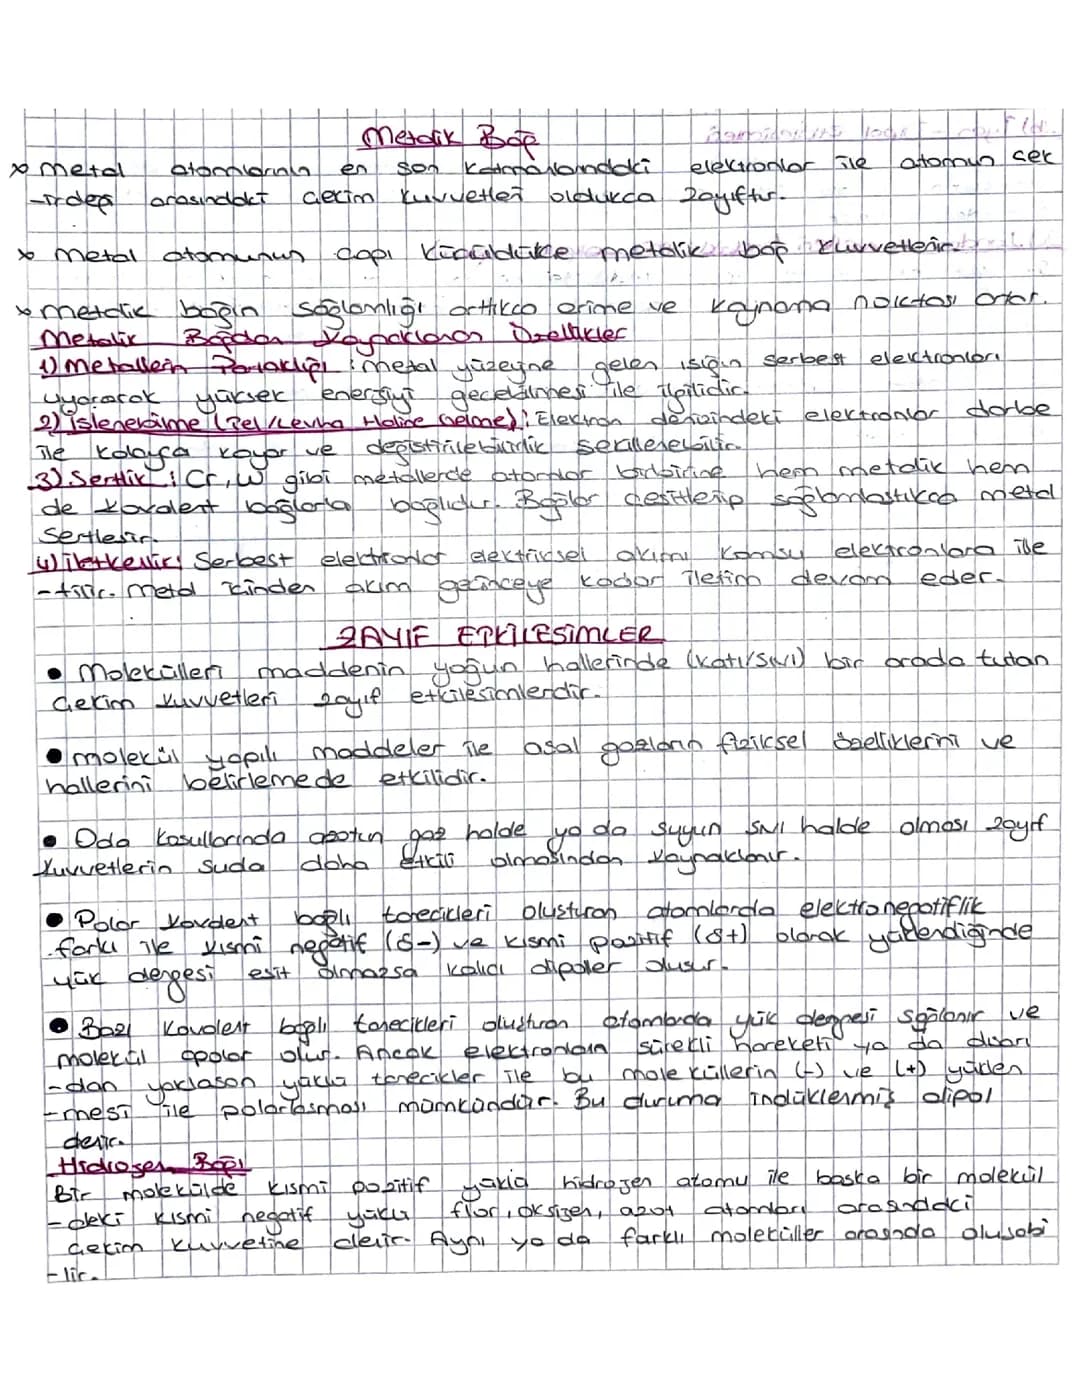 Metalik Bağ
x metal atomlarının en son katmanlarındaki elektronlar ile atomun çek
-irdeği arasındaki çekim kuvvetleri oldukça zayıftır.
x metal atomunun çapı küçüldükçe metalik bağ kuvvetlenir.
x metalik bağın sağlamlığı arttıkça erime ve kaynama noktası artar.
Metalik Bağdan Kaynaklanan Özellikler
1) Metallerin Parlaklığı: metal yüzeyine gelen ışığın serbest elektronları
uyararak yüksek enerjiyi geçebilmesi ile ilgilidir.
2) işlenebilme (Tel/Levha Haline Gelme): Elektron denizindeki elektronlar darbe
ile kolayca kayar ve değiştirilebilirlik şekillenebilir.
3) Sertlik: Cr, W gibi metallerde atomlar birbirine hem metalik hem
de kovalent bağlarla bağlıdır. Bağlar çeşitlenip sağlamlaştıkça metal
Sertleşir.
4) iletkenlik: Serbest elektronlar elektriksel akımı komşu elektronlara ile
-tilir. Metal içinden akım geçinceye kadar iletim devam eder.
ZAYIF ETKİLEŞİMLER
• Molekülleri maddenin yoğun hallerinde (katı/sıvı) bir arada tutan
çekim kuvvetleri zayıf etkileşimlerdir.
• molekül yapılı maddeler ile asal gazların fiziksel özelliklerini ve
hallerini belirlemede etkilidir.
• Oda koşullarında azotun gaz halde ya da suyun sıvı halde olması zayıf
kuvvetlerin suda daha etkili olmasından kaynaklanır.
• Polar kovalent bağlı tanecikleri oluşturan atomlarda elektronegatiflik
farkı ile kısmi negatif (δ-) ve kısmi pozitif (δ+) olarak yüklendiğinde
yük dengesi eşit olmazsa kalıcı dipoller oluşur.
• Bazı kovalent bağlı tanecikleri oluşturan atomlarda yük dengesi sağlanır ve
molekül apolar olur. Ancak elektronların sürekli hareketi ya da dışarı
-dan yaklaşan yüklü tanecikler ile bu moleküllerin (-) ve (+) yüklen
-mesi ile polarlaşması mümkündür. Bu duruma indüklenmiş dipol
denir.
Hidrojen Bağı
Bir molekülde kısmi pozitif yüklü hidrojen atomu ile başka bir molekül
-deki kısmi negatif yüklü flor, oksijen, azot atomları arasındaki
çekim kuvvetine denir. Aynı ya da farklı moleküller arasında oluşabi
-lir.